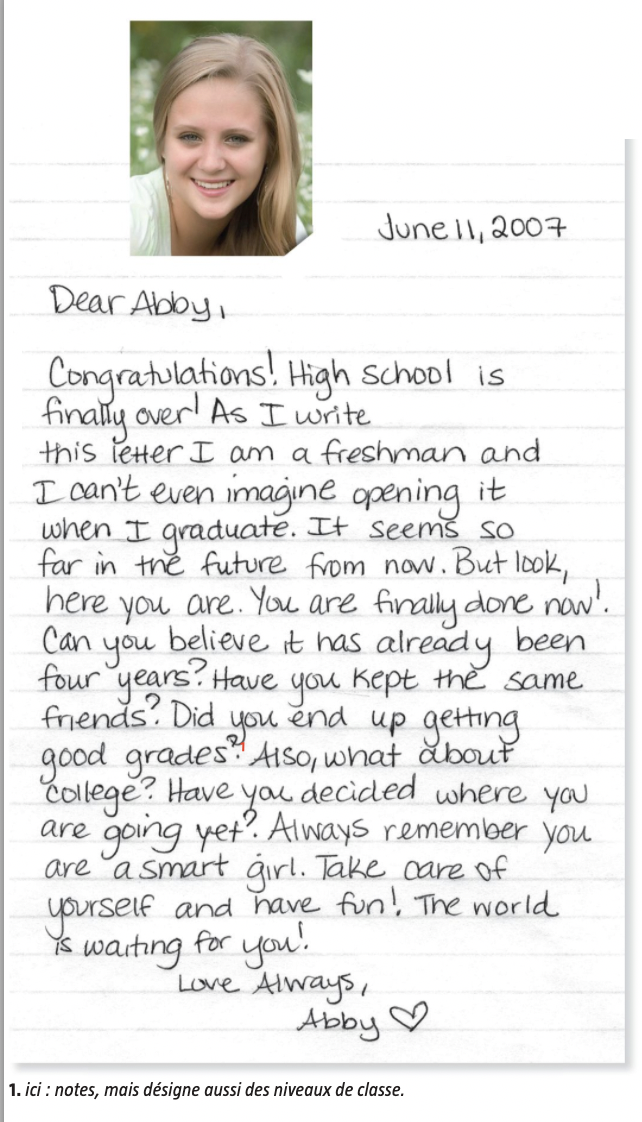 June 11, 2007
Dear Abby,
Congratulations! High school is
finally over! As I write
this letter I am a freshman and
I can't even imagine opening it
when I graduate. It seems so
far in the future from now. But look,
here you are. You are finally done now!
Can you believe it has already been
four years? Have you kept the same
friends? Did you end up getting
good grades?¹ Also, what about
college? Have you decided where you
are going yet? Always remember you
are a smart girl. Take care of
yourself and have fun! The world
is waiting for you!
Love Always,
Abby ♡
1. ici : notes, mais désigne aussi des niveaux de classe.